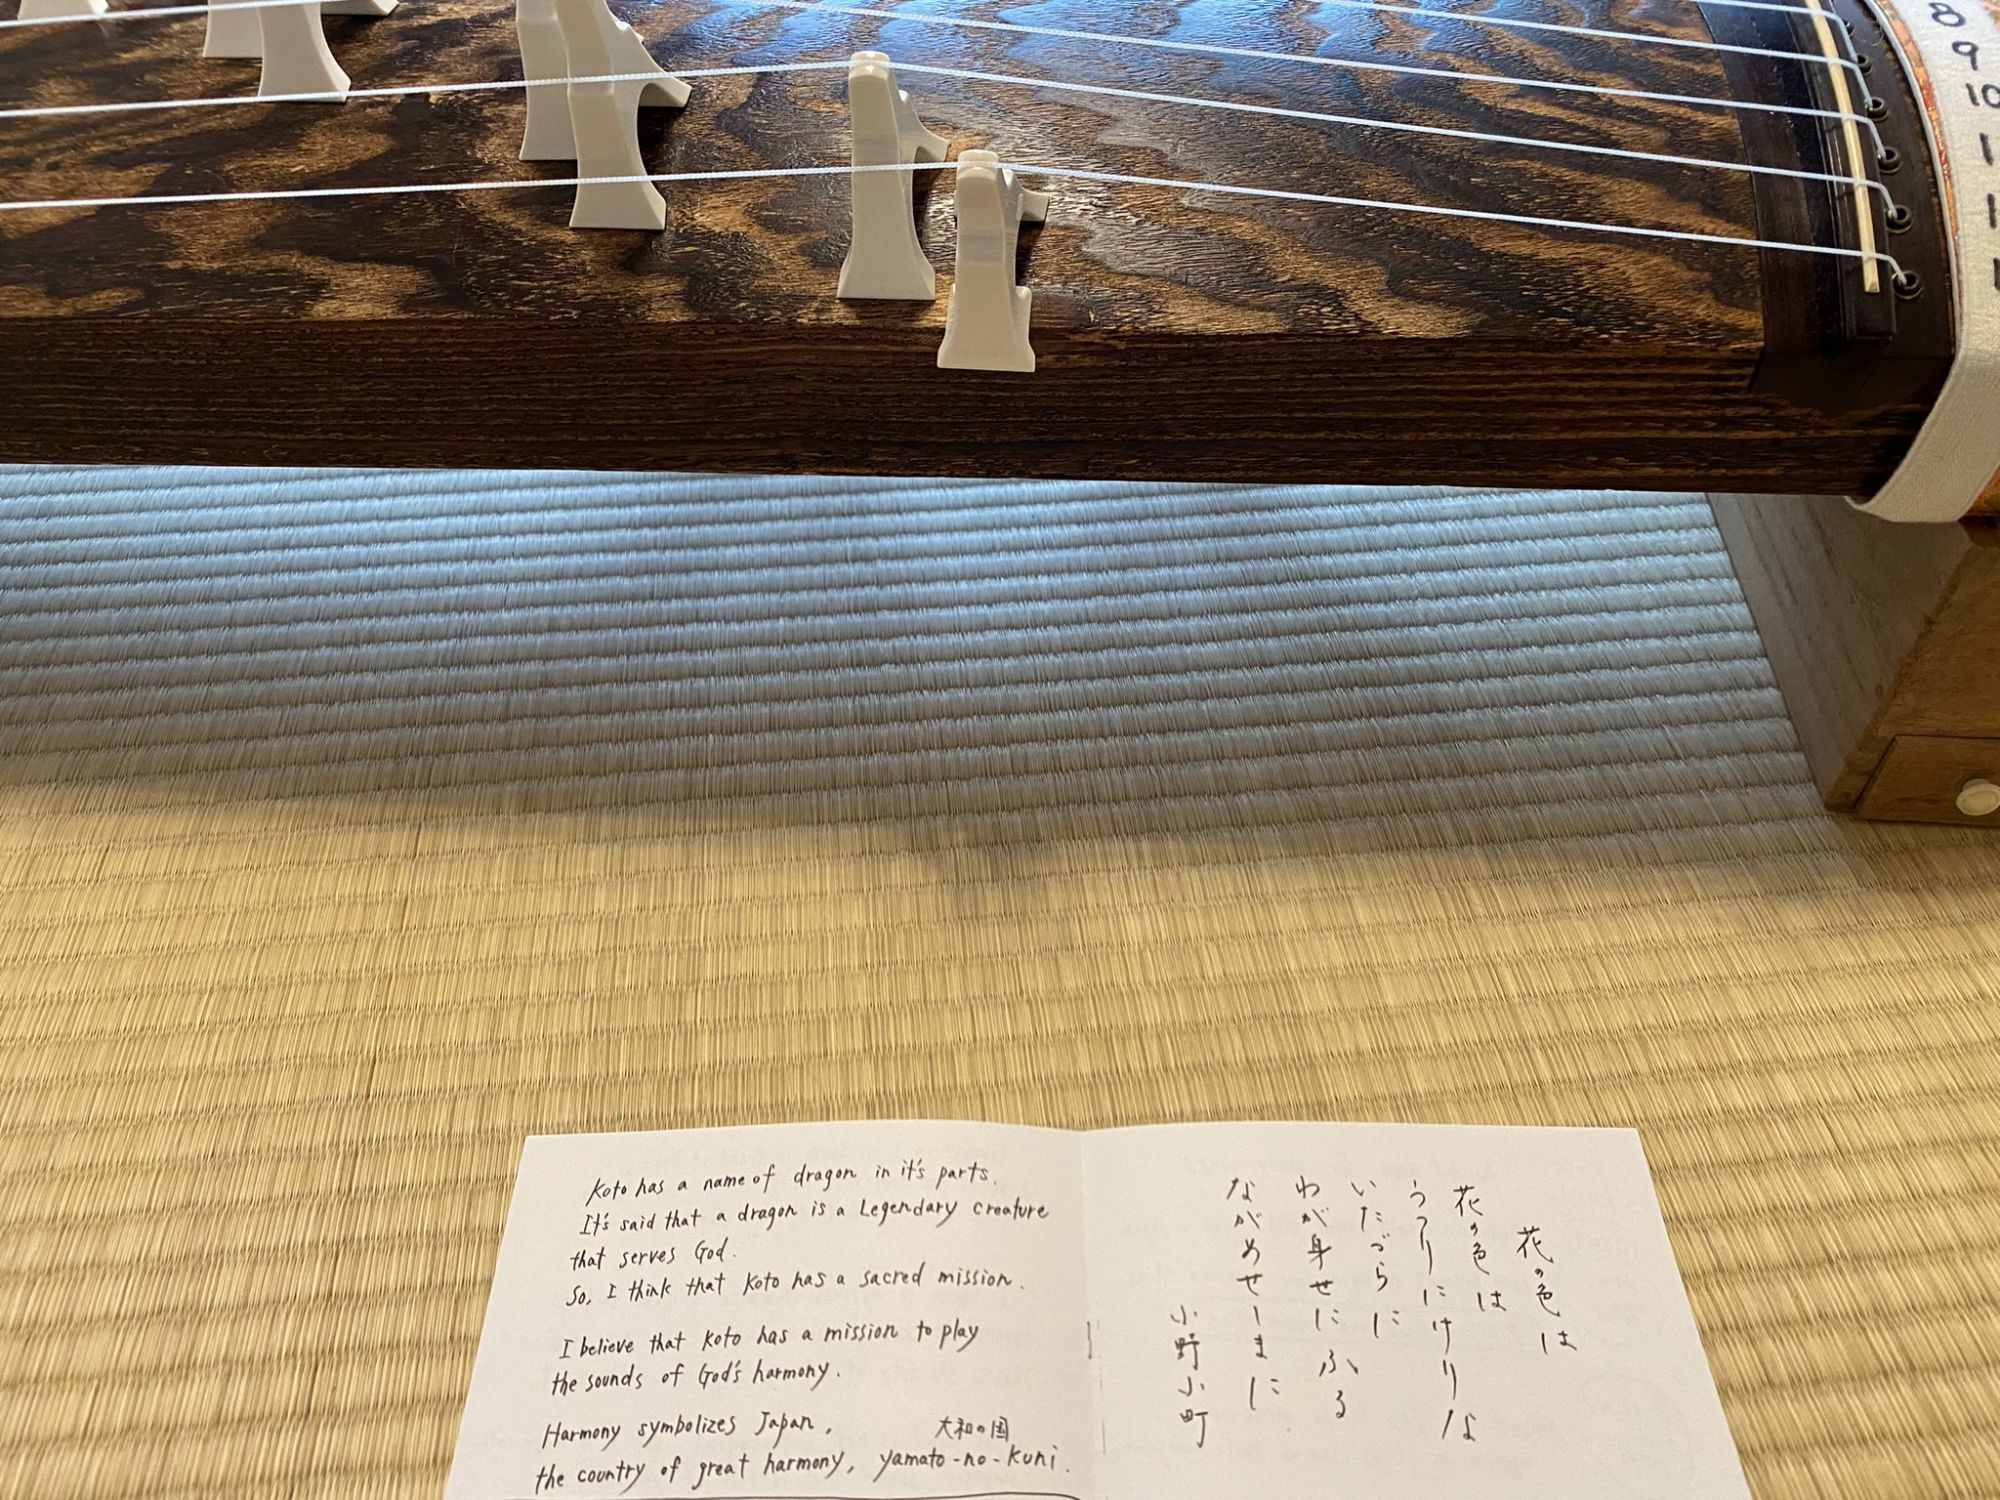 8
9
10
1
1
1
Koto has a name of dragon in it's parts.
It's said that a dragon is a Legendary creature
that serves God.
So, I think that Koto has a sacred mission.
I believe that Koto has a mission to play
the sounds of God's harmony.
Harmony symbolizes Japan,
大和の国
the country of great harmony, yamato-no-kuni.
花の色は
花の色は
うつりにけりな
いたづらに
わが身せにふる
ながめせしまに
小野小町